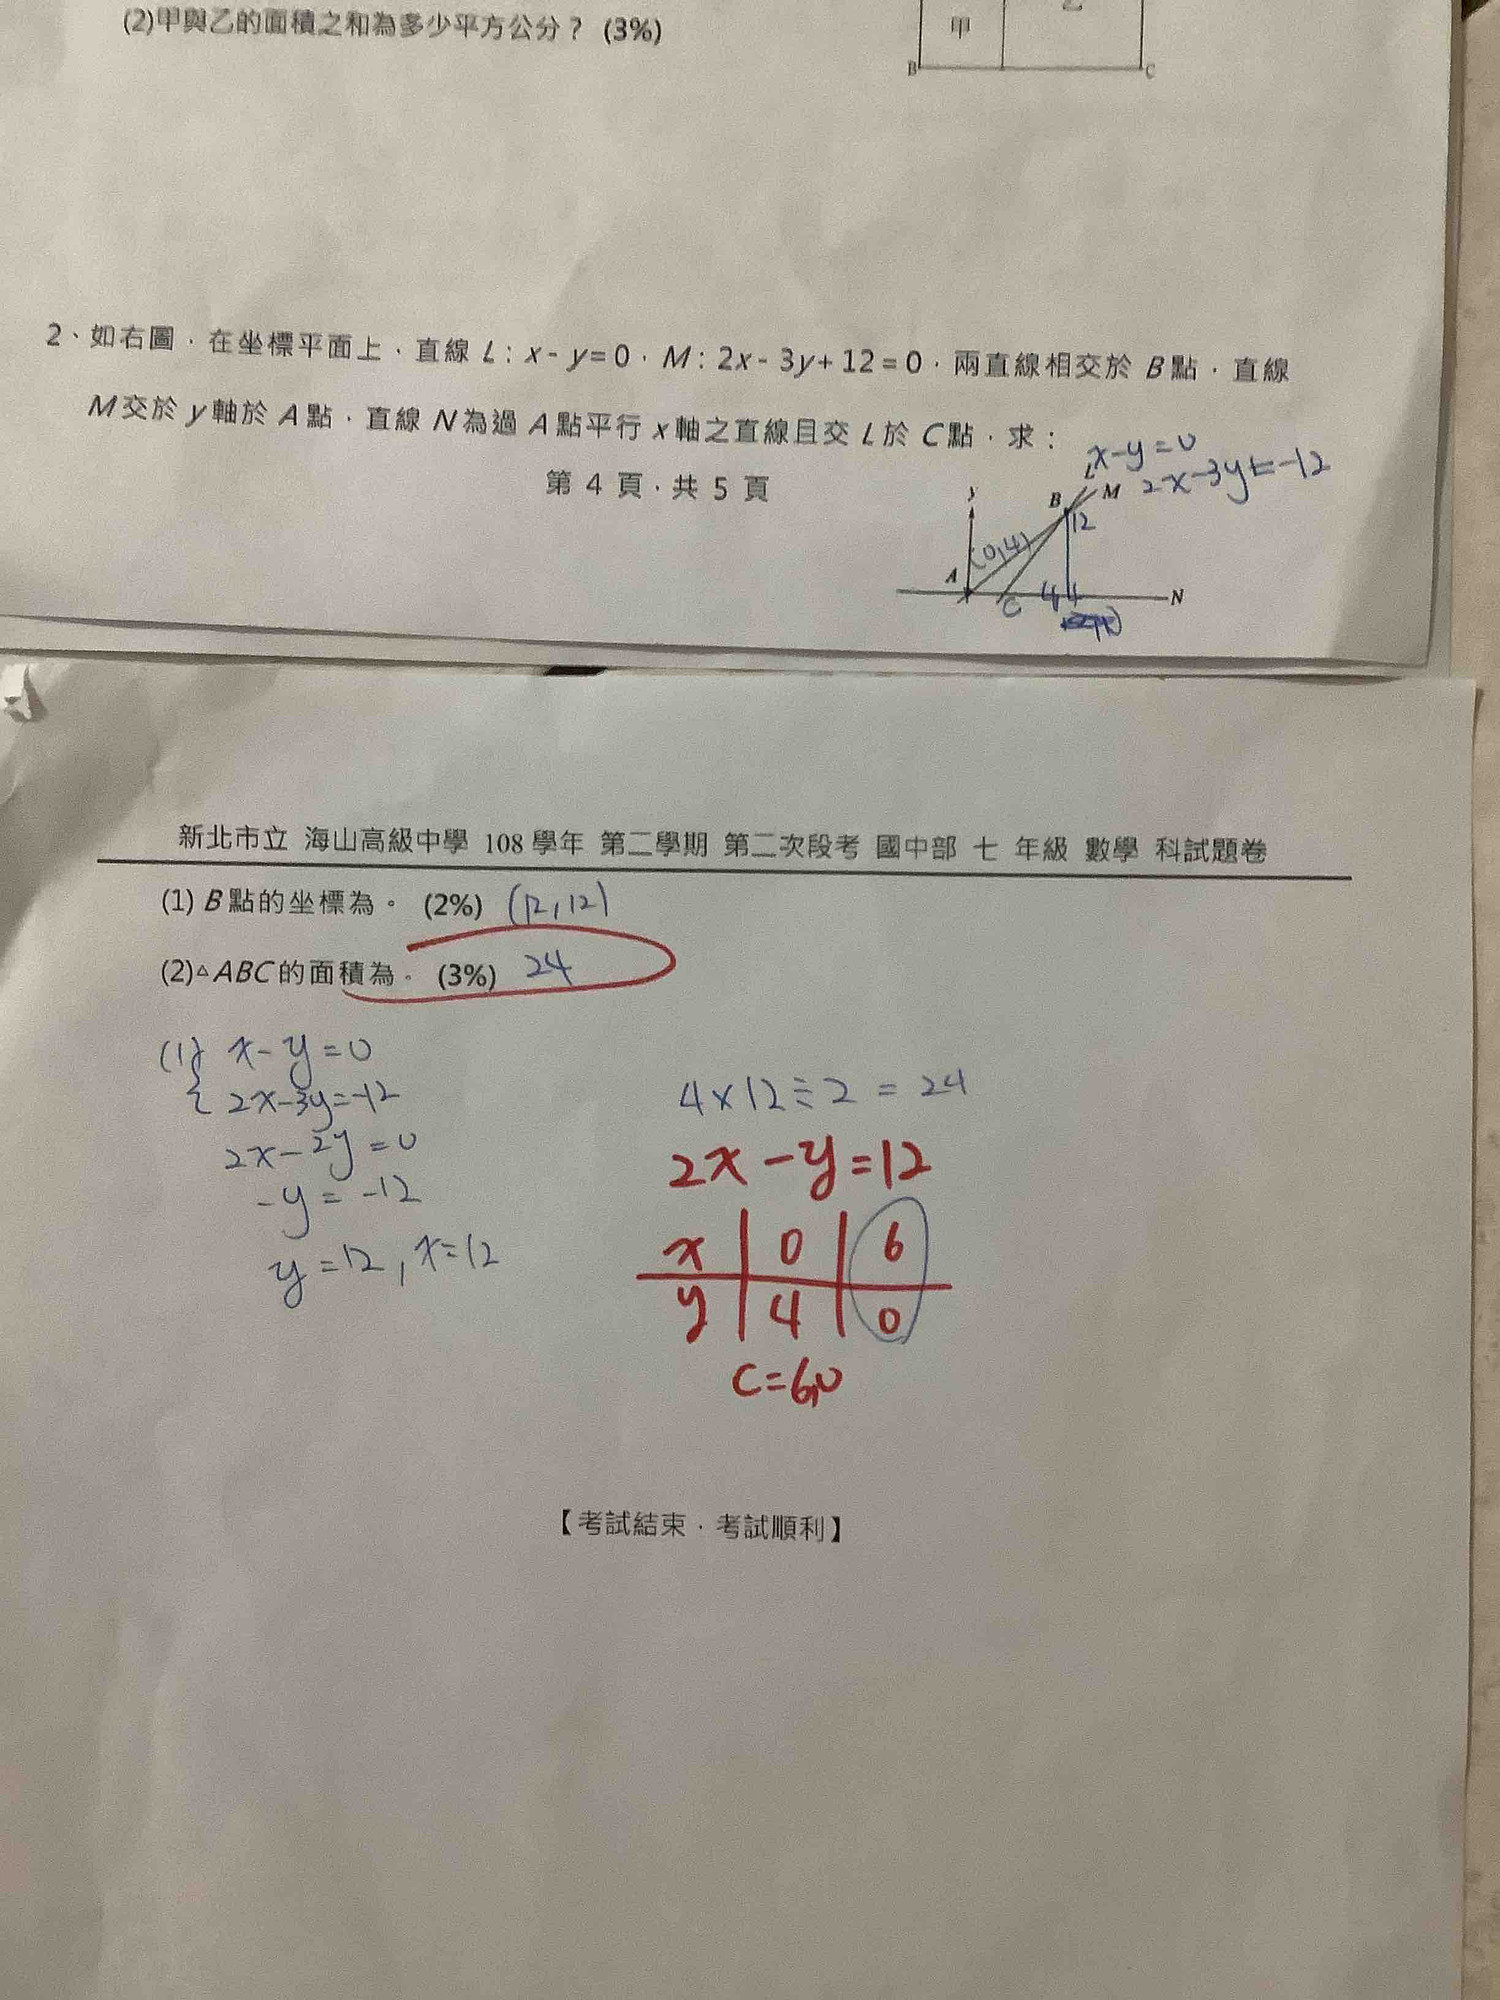 (2)甲與乙的面積之和為多少平方公分？ (3%)
甲
乙
B
C
2、如右圖，在坐標平面上，直線 L：x - y = 0，M：2x - 3y + 12 = 0，兩直線相交於 B 點，直線
M 交於 y 軸於 A 點，直線 N 為過 A 點平行 x 軸之直線且交 L 於 C 點，求：
x-y=0
第 4 頁，共 5 頁
y
B
L
M
2x-3y=-12
12
(0,4)
A
C
4
N
新北市立 海山高級中學 108 學年 第二學期 第二次段考 國中部 七 年級 數學 科試題卷
(1) B 點的坐標為。 (2%) (12,12)
(2)△ABC 的面積為。 (3%) 24
(1) x-y=0
2x-3y=-12
4×12÷2=24
2x-2y=0
2x-y=12
-y=-12
x 0 6
y=12, x=12
y 4 0
C=6,0
【考試結束，考試順利】